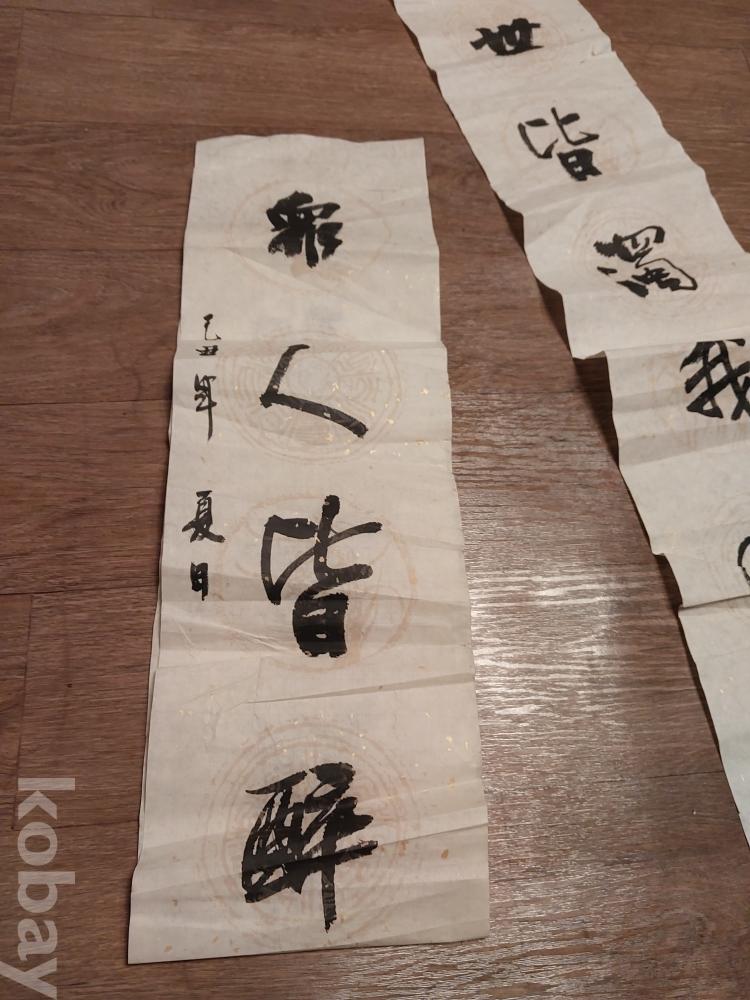 世皆濁我
眾人皆醉
己丑年 夏日
kobay